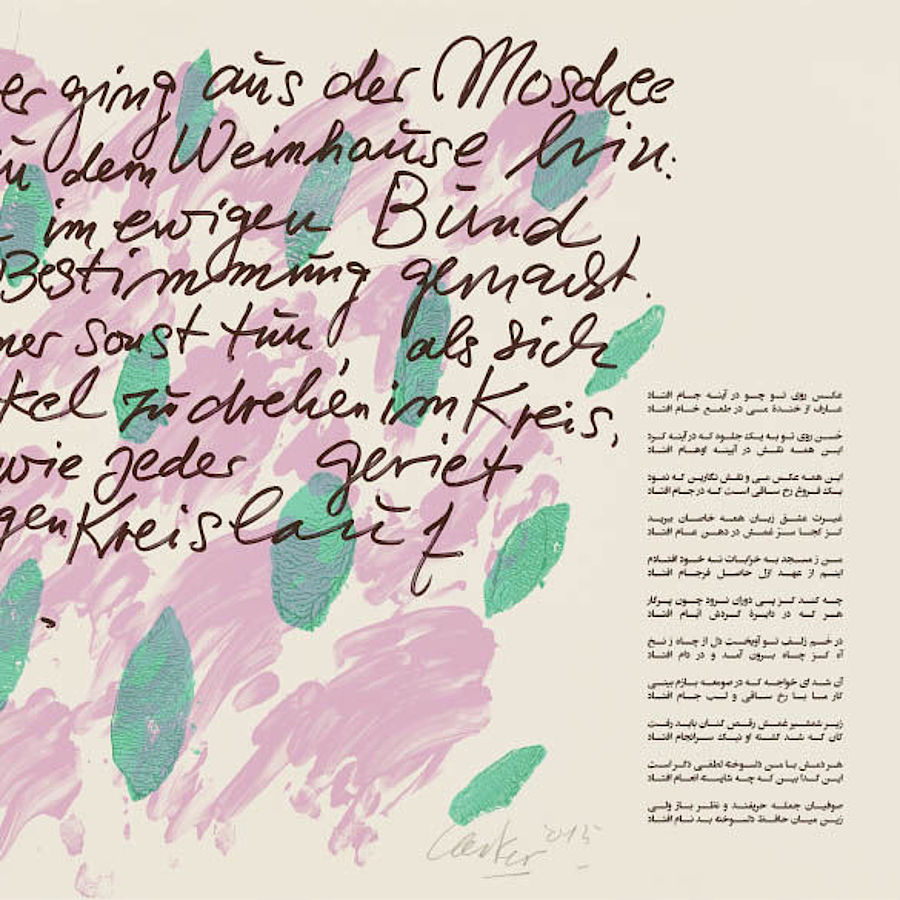 er ging aus der Moschee
zu dem Weinhause hin:
im ewigen Bund
Bestimmung gemacht.
ner sonst tun, als sich
kel zu drehen im Kreis,
wie jeder geriet
gen Kreislauf
.
عکس روی تو چو در آینه جام افتاد
عارف از خنده می در طمع خام افتاد
حسن روی تو به یک جلوه که در آینه کرد
این همه نقش در آیینه اوهام افتاد
این همه عکس می و نقش نگارین که نمود
یک فروغ رخ ساقی است که در جام افتاد
غیرت عشق زبان همه خاصان ببرید
کز کجا سرّ غمش در دهن عام افتاد
من ز مسجد به خرابات نه خود افتادم
اینم از عهد ازل حاصل فرجام افتاد
چه کند کز پی دوران نرود چون پرگار
هر که در دایرهٔ گردش ایام افتاد
در خم زلف تو آویخت دل از چاه ز نخ
آه کز چاه برون آمد و در دام افتاد
آن شد ای خواجه که در صومعه بازم بینی
کار ما با رخ ساقی و لب جام افتاد
زیر شمشیر غمش رقص کنان باید رفت
کان که شد کشته او نیک سرانجام افتاد
هر دمش با من دلسوخته لطفی دگر است
این گدا بین که چه شایسته انعام افتاد
صوفیان جمله حریفند و نظر باز ولی
زین میان حافظ دلسوخته بد نام افتاد
2015